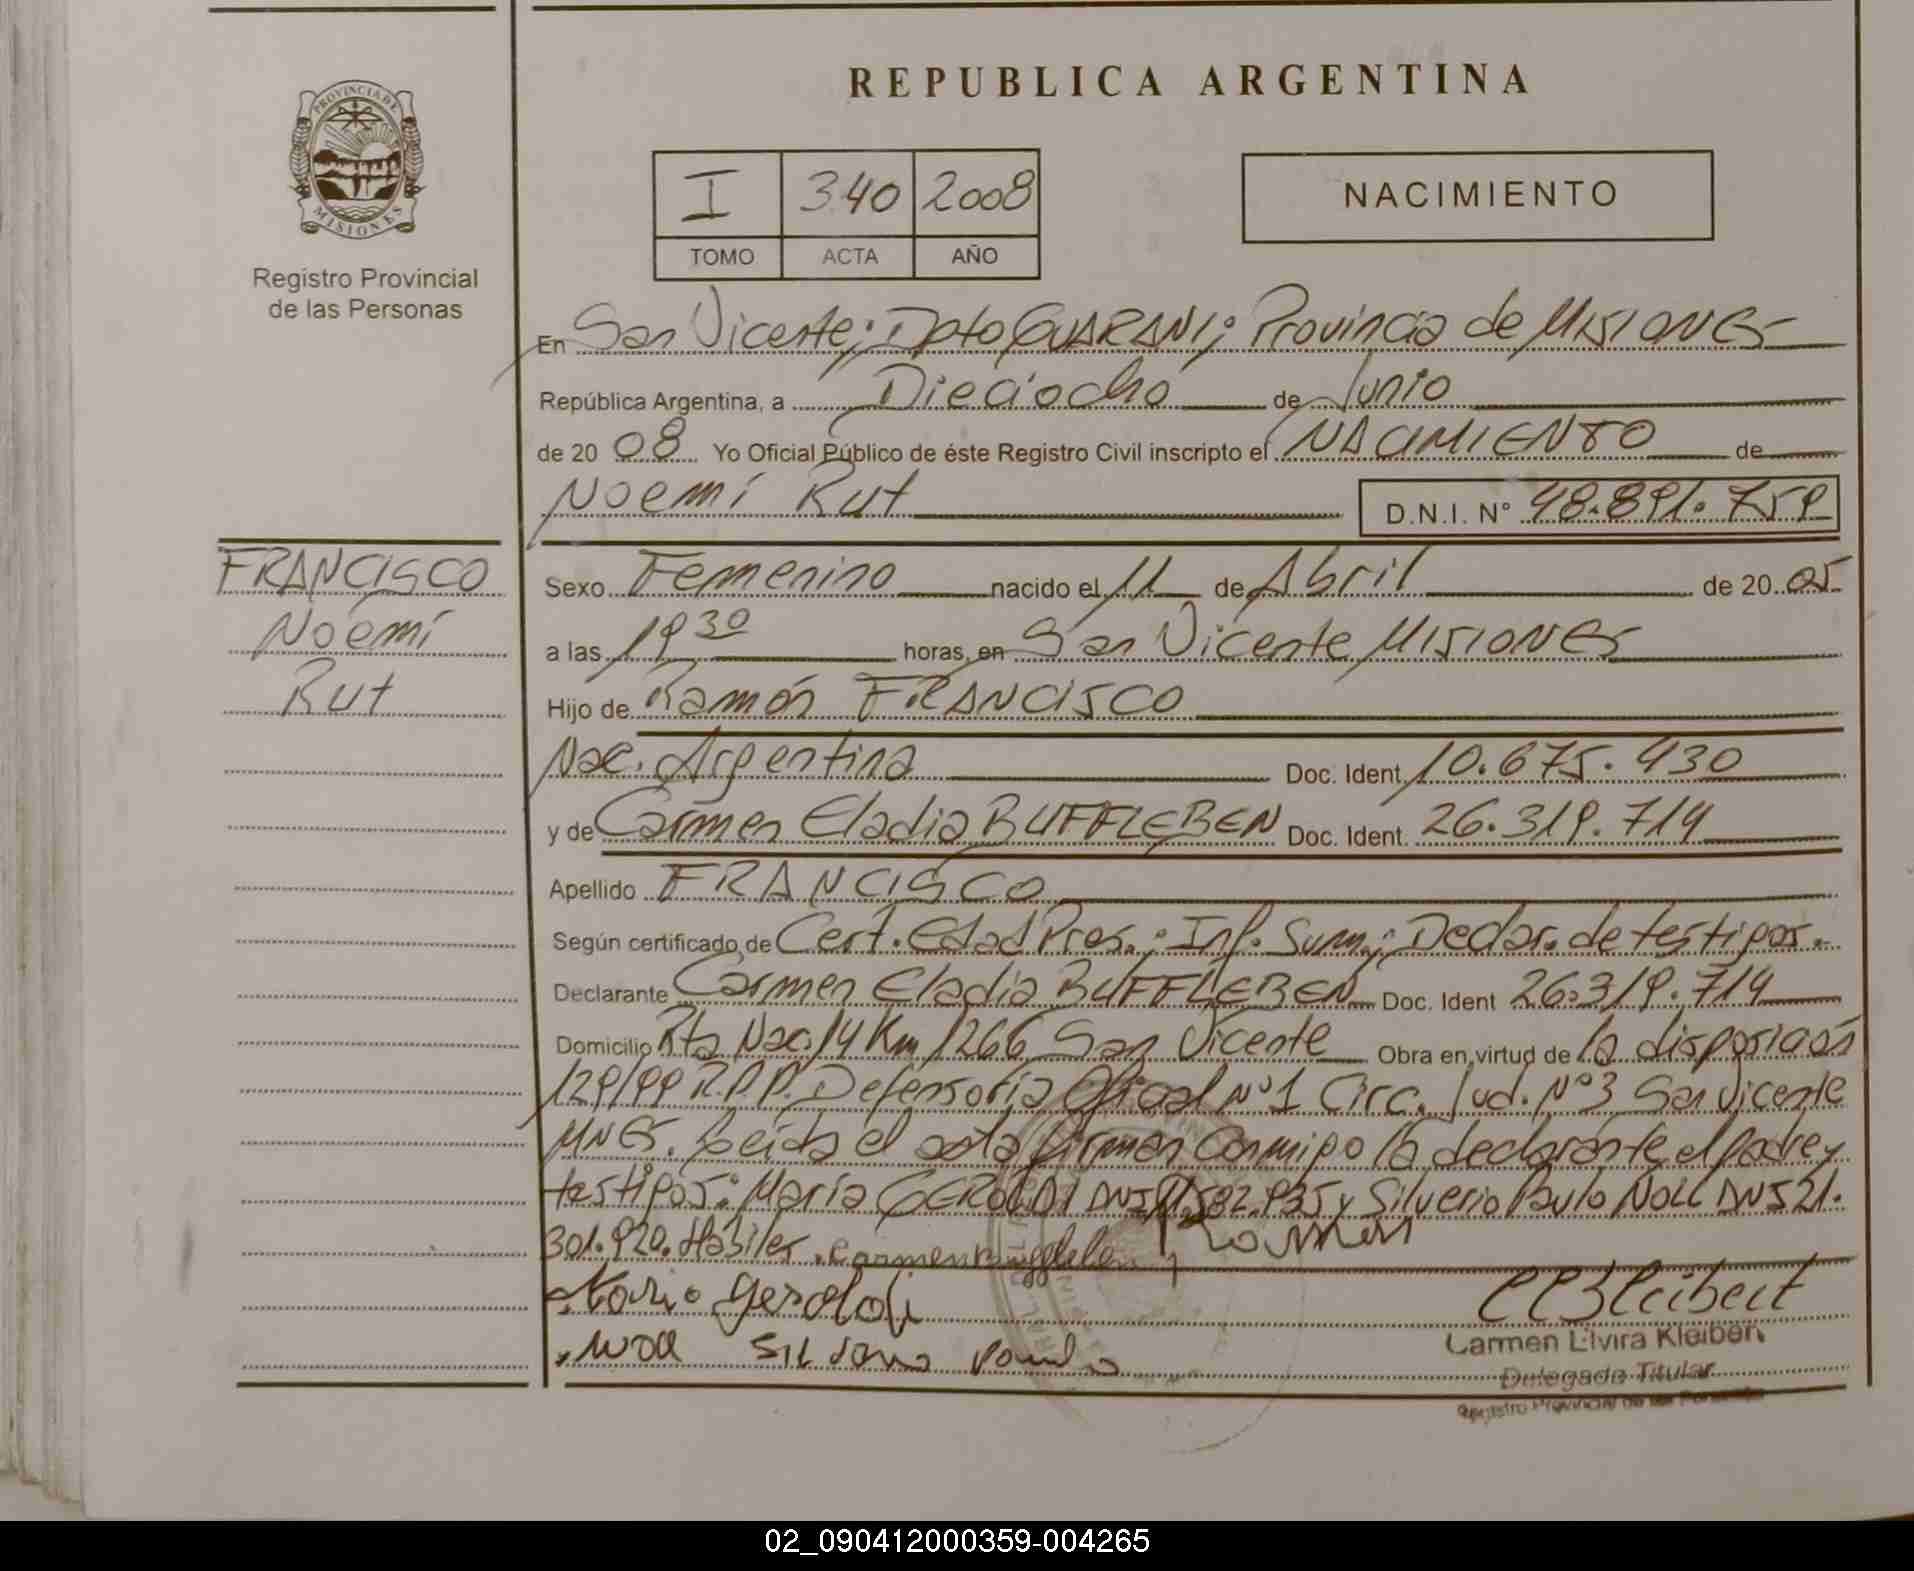 PROVINCIA DE
MISIONES
Registro Provincial
de las Personas
REPUBLICA ARGENTINA
I 340 2008
TOMO ACTA AÑO
NACIMIENTO
En San Vicente; Dpto GUARANI; Provincia de MISIONES
República Argentina, a Dieciocho de Junio
de 2008 Yo Oficial Público de éste Registro Civil inscripto el NACIMIENTO de
Noemí Rut D.N.I. N° 48.891.759
FRANCISCO
Noemí
Rut
Sexo Femenino nacido el 11 de Abril de 2005
a las 19 30 horas, en San Vicente MISIONES
Hijo de Ramón FRANCISCO
Nac. Argentina Doc. Ident. 10.675.430
y de Carmen Eladia BUFFLEBEN Doc. Ident. 26.319.714
Apellido FRANCISCO
Según certificado de Cert. Edad Pres.; Inf. Sum.; Declar. de testigos.
Declarante Carmen Eladia BUFFLEBEN Doc. Ident 26.319.714
Domicilio Rta Nac. 14 Km 1266 San Vicente Obra en virtud de la disposición
129/99 R.P.P. Defensoría Oficial N°1 Circ. Jud. N°3 San Vicente
MNES. Leída el acta firman conmigo la declarante, el padre y
testigos: María GEROLDI DNI 582.935 y Silverio Paulo NOLL DNI 21.
301.920. Hábiles. Carmen Buffleben Ramon
Maria Geroldi
Noll
CEKleibert
Carmen Elvira Kleibert
Delegado Titular
Registro Provincial de las Personas
02_090412000359-004265